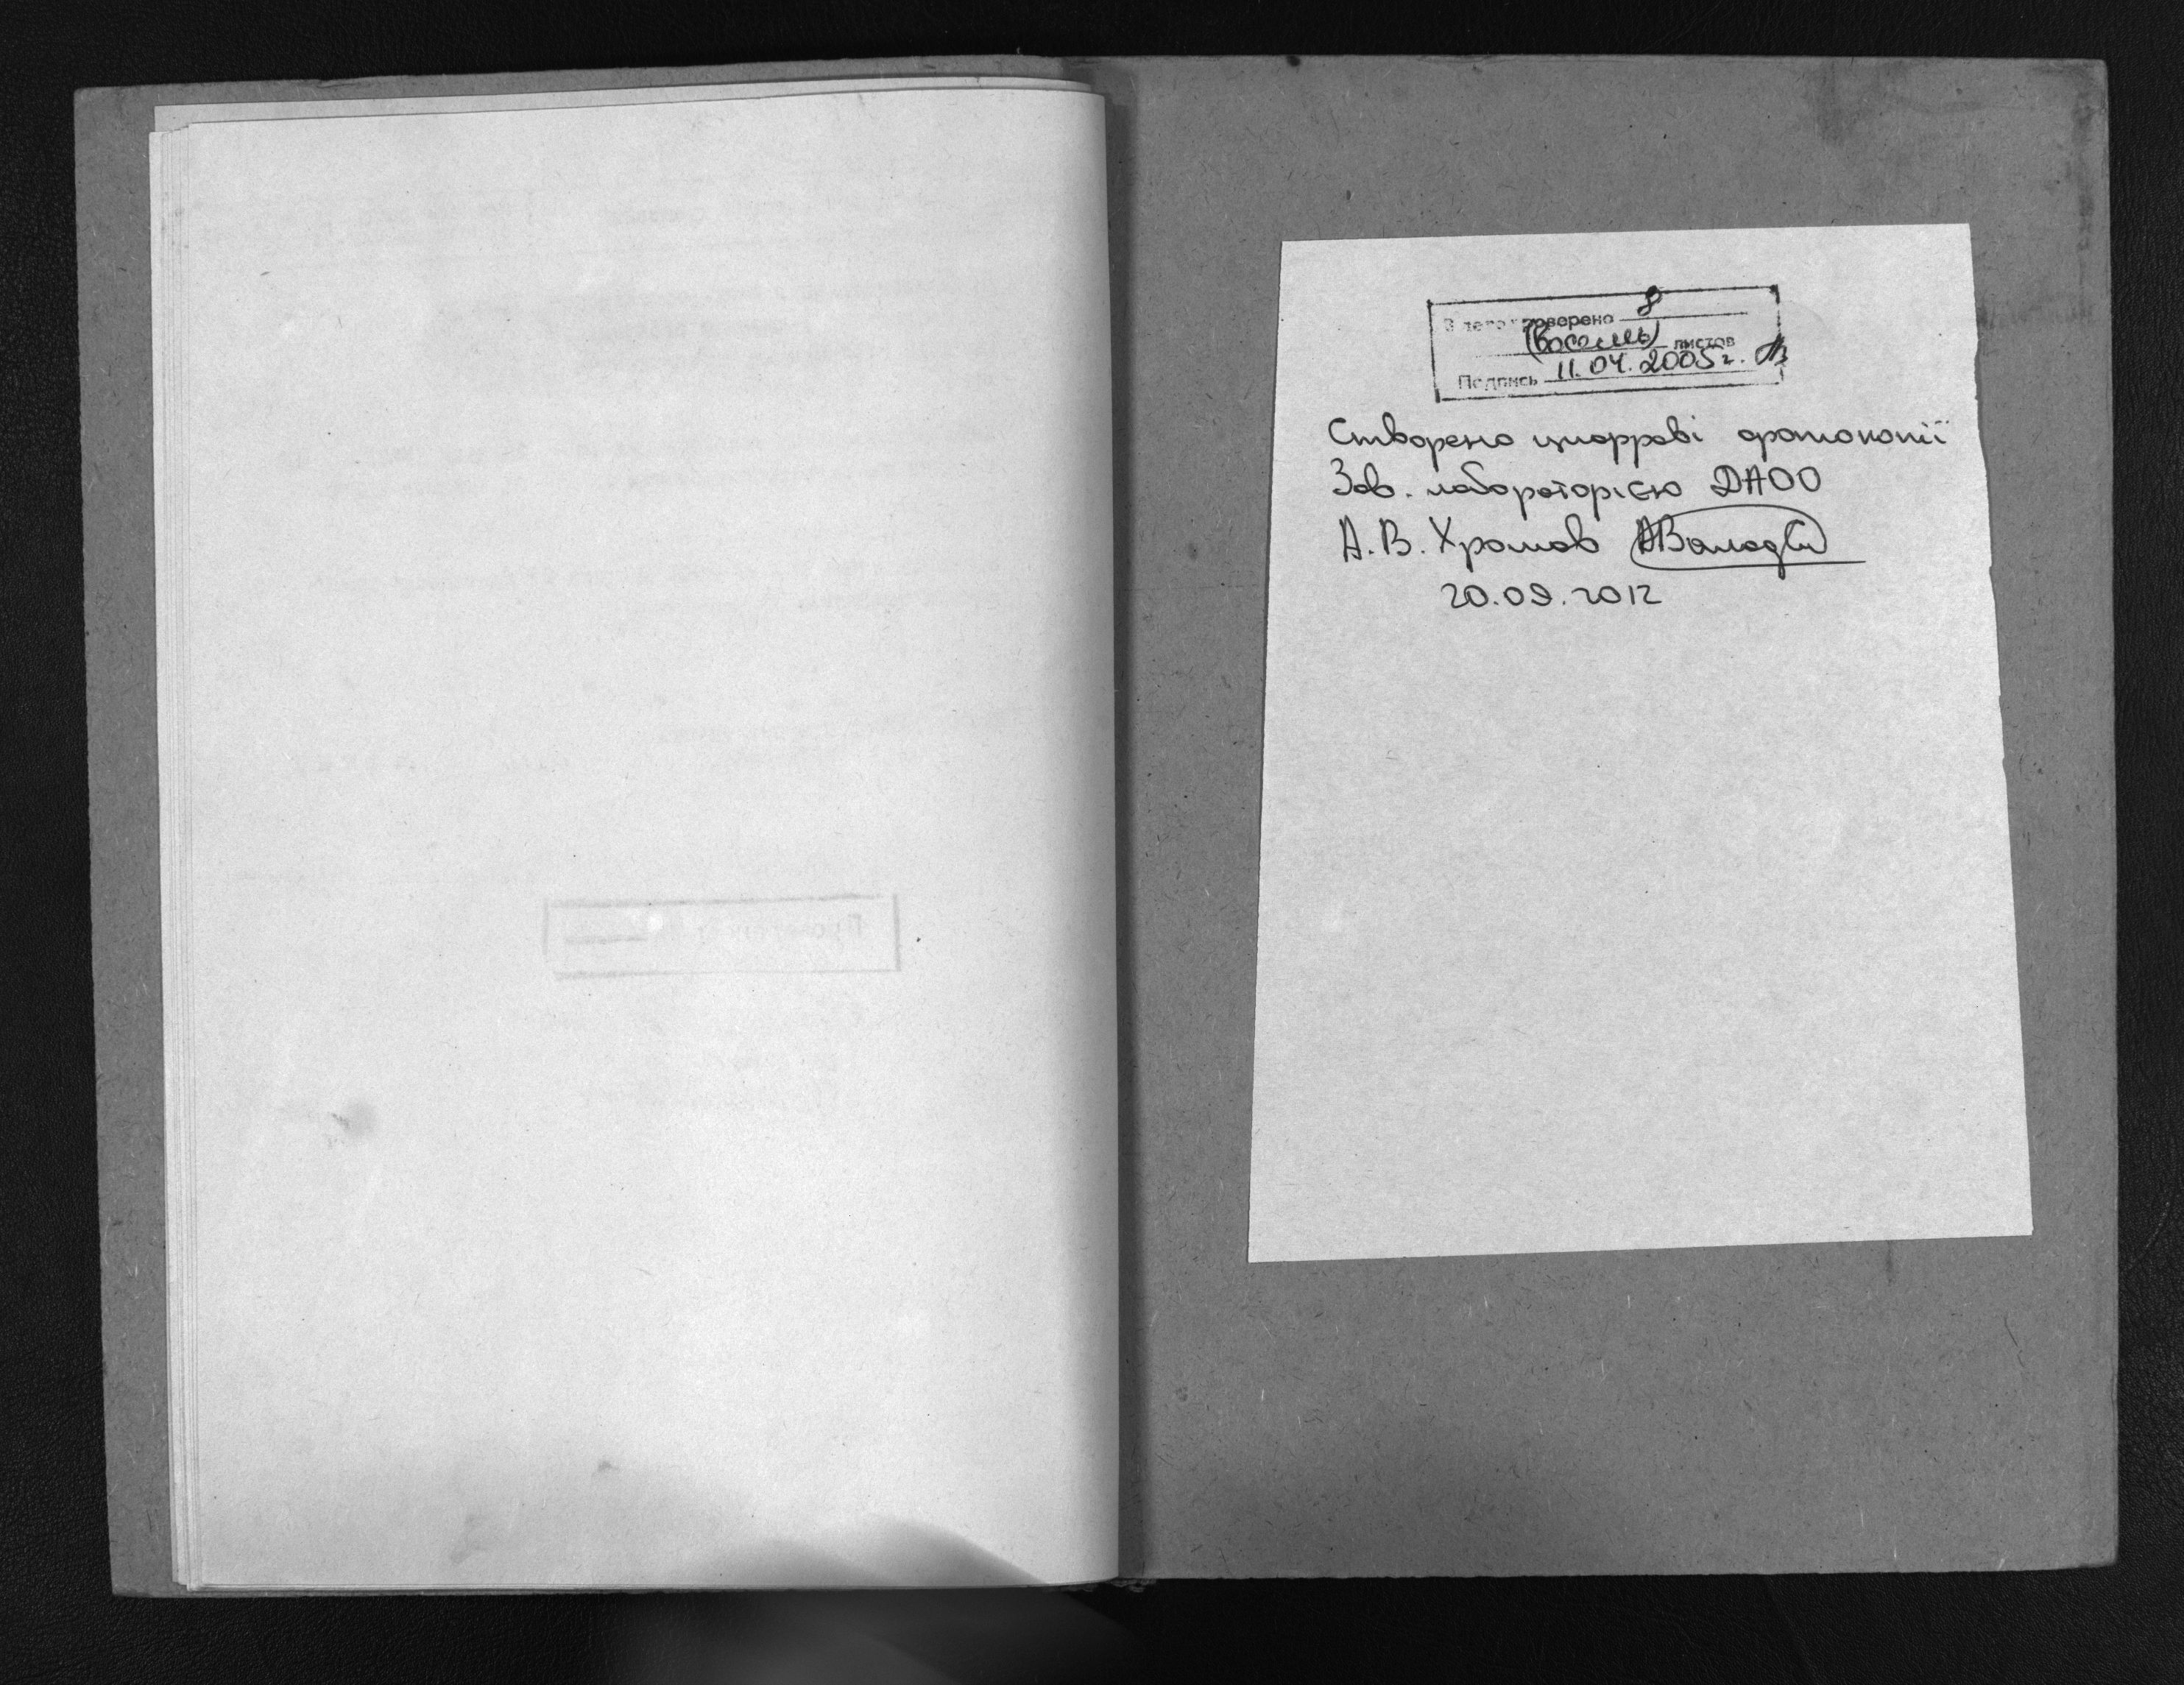 В деле проверено 8
(восемь) листов
Подпись 11.04.2005 г.
Створено цифрові фотокопії
Зав. лабораторією ДАОО
А. В. Хромов
20.09.2012